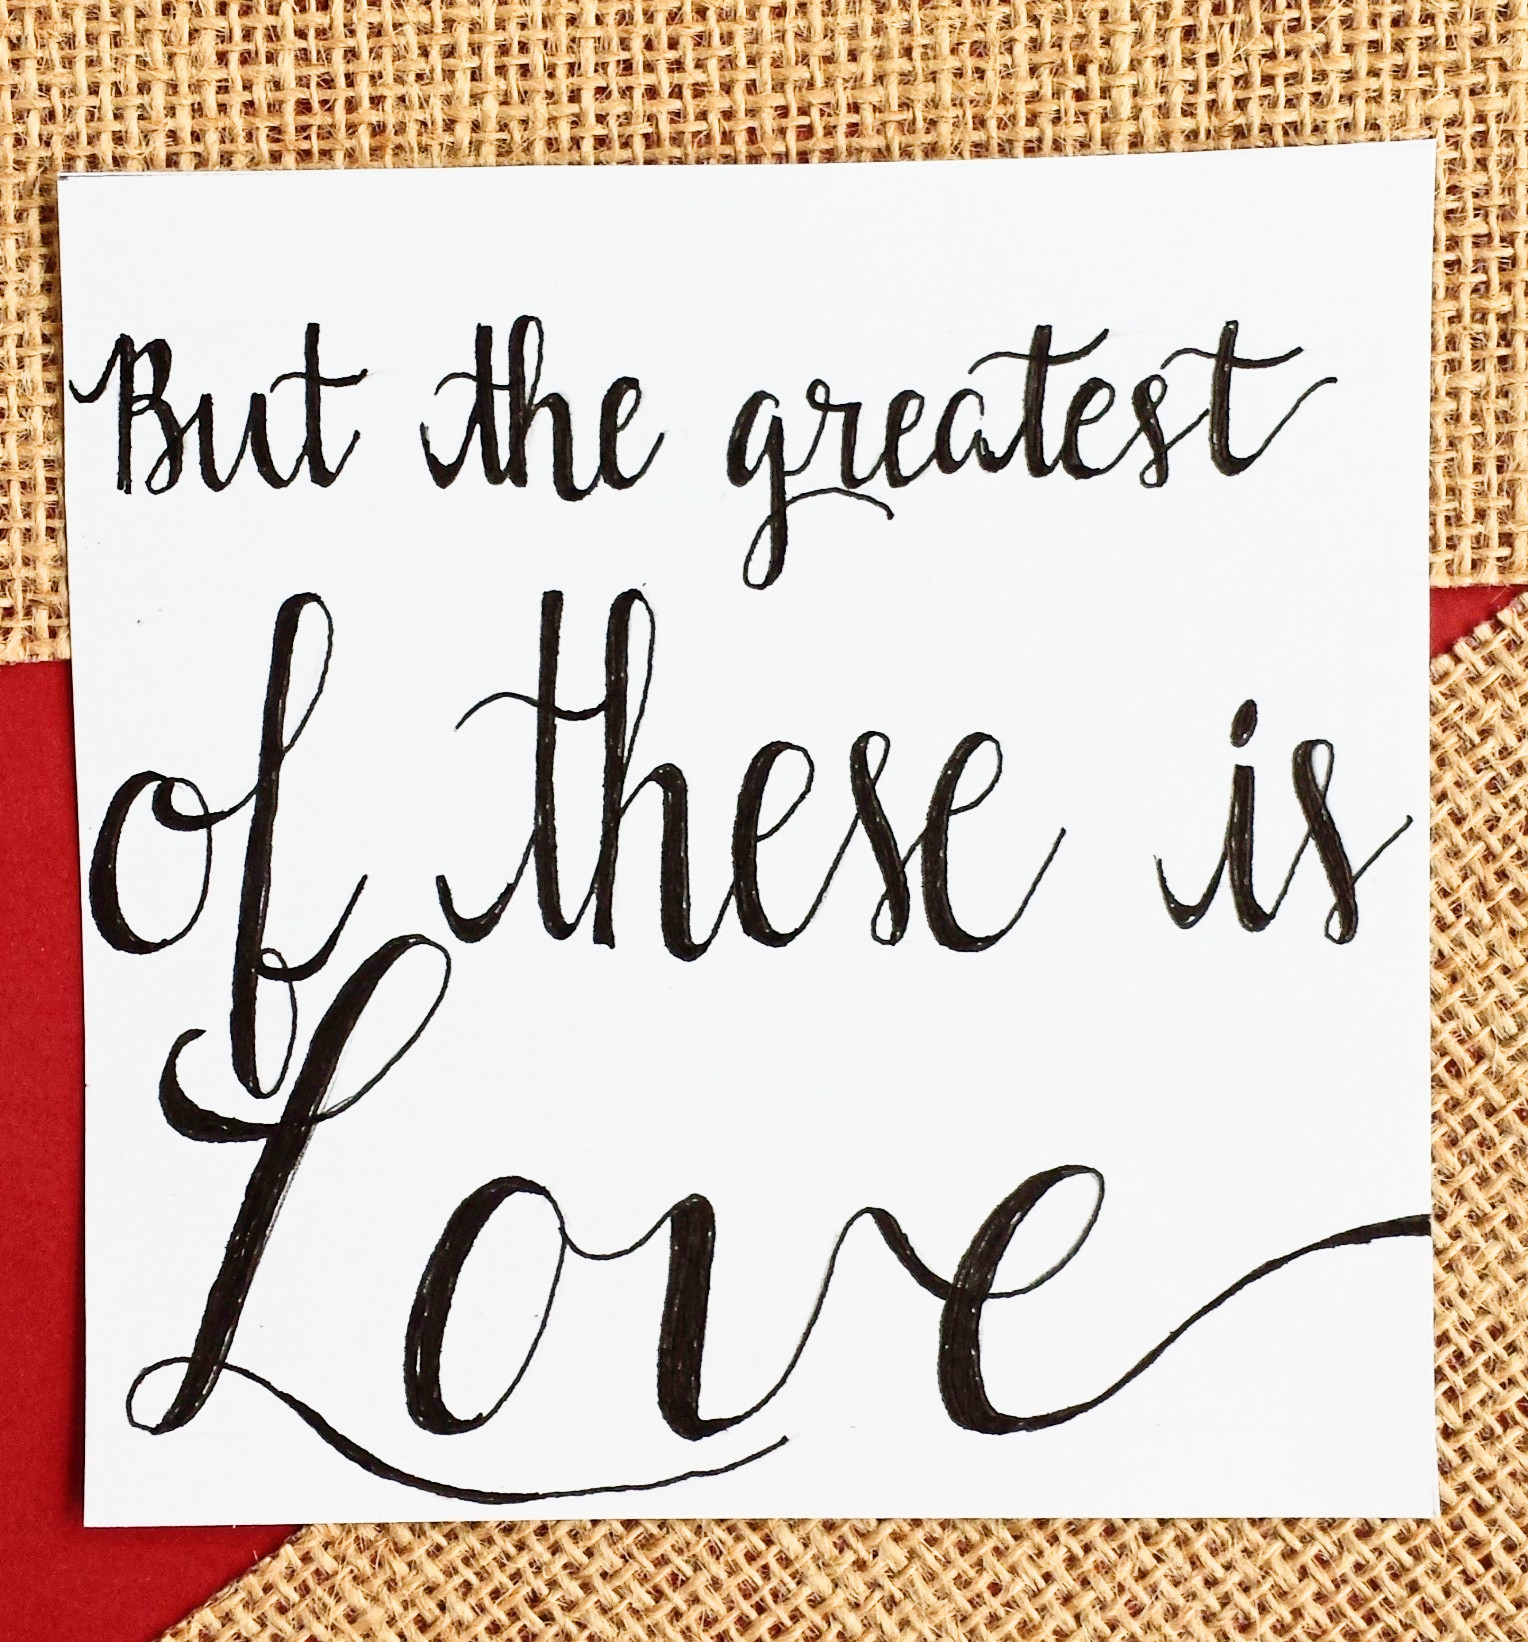 But the greatest
of these is
Love